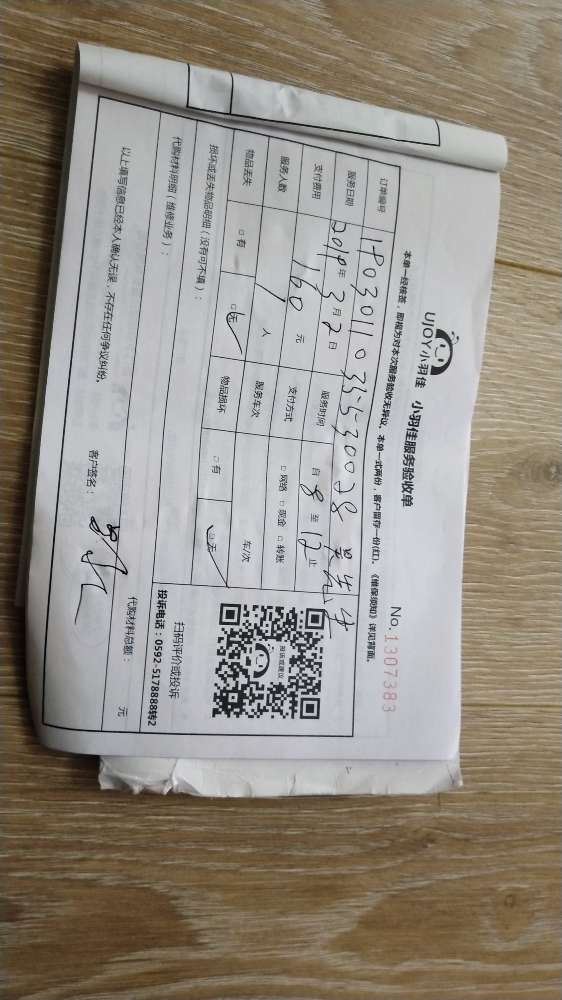 UJOY小羽佳 小羽佳服务验收单
本单一经核签，即视为对本次服务验收无异议。本单一式两份，客户留存一份(红)。《维保须知》详见背面。
No. 1307383
订单编号 1803011035530028 吴先生
服务日期 2018年3月2日 服务时间 自8至12止
支付费用 160元 支付方式 □网络 □现金 □转账
服务人数 1人 服务车次 车/次
物品丢失 □有 □无 物品损坏 □有 □无
损坏或丢失物品明细（没有可不填）：
投诉或建议
扫码评价或投诉
投诉电话：0592-5178888转2
代购材料明细（维修业务）：
代购材料总额： 元
以上填写信息已经本人确认无误，不存在任何争议纠纷。 客户签名：